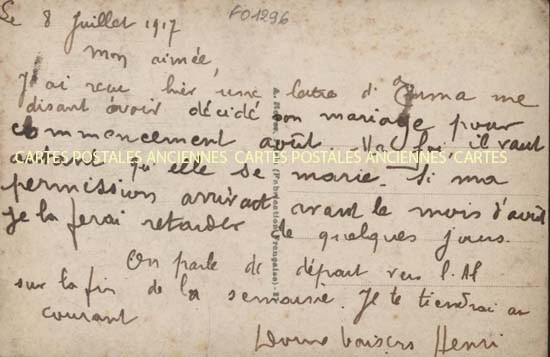 Le 8 Juillet 1917
FO1296
Mon aimée,
J'ai reçu hier une lettre d' me
disant avoir décidé son mariage pour
commencement août. Ma foi, il vaut
autant qu'elle se marie. Si ma
CARTES POSTALES ANCIENNES CARTES POSTALES ANCIENNES CARTES
permission arrivait avant le mois d'août
je la ferai retarder de quelques jours.
On parle de départ vers l'
sur la fin de la semaine. Je te tiendrai au
courant
baisers Henri
(Fabrication Française)